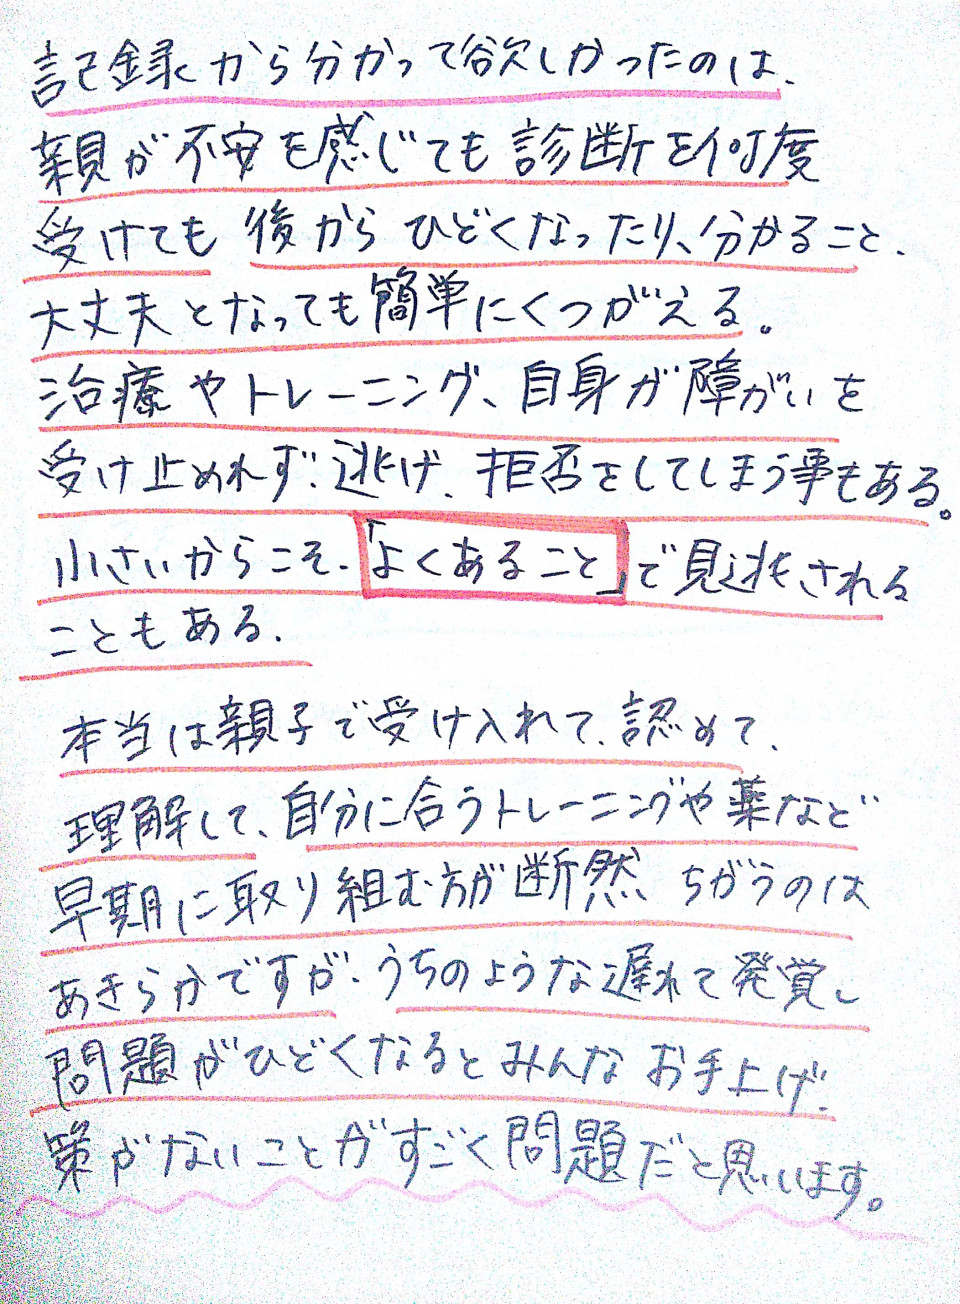 記録から分かって欲しかったのは、
親が不安を感じても診断を何度
受けても 後からひどくなったり、分かること、
大丈夫となっても簡単にくつがえる。
治療やトレーニング、自身が障がいを
受け止めれず、逃げ、拒否をしてしまう事もある。
小さいからこそ、「よくあること」で見逃される
こともある、
本当は親子で受け入れて、認めて、
理解して、自分に合うトレーニングや薬など
早期に取り組む方が断然、ちがうのは
あきらかですが、うちのような遅れて発覚し
問題がひどくなるとみんなお手上げ、
策がないことがすごく問題だと思います。